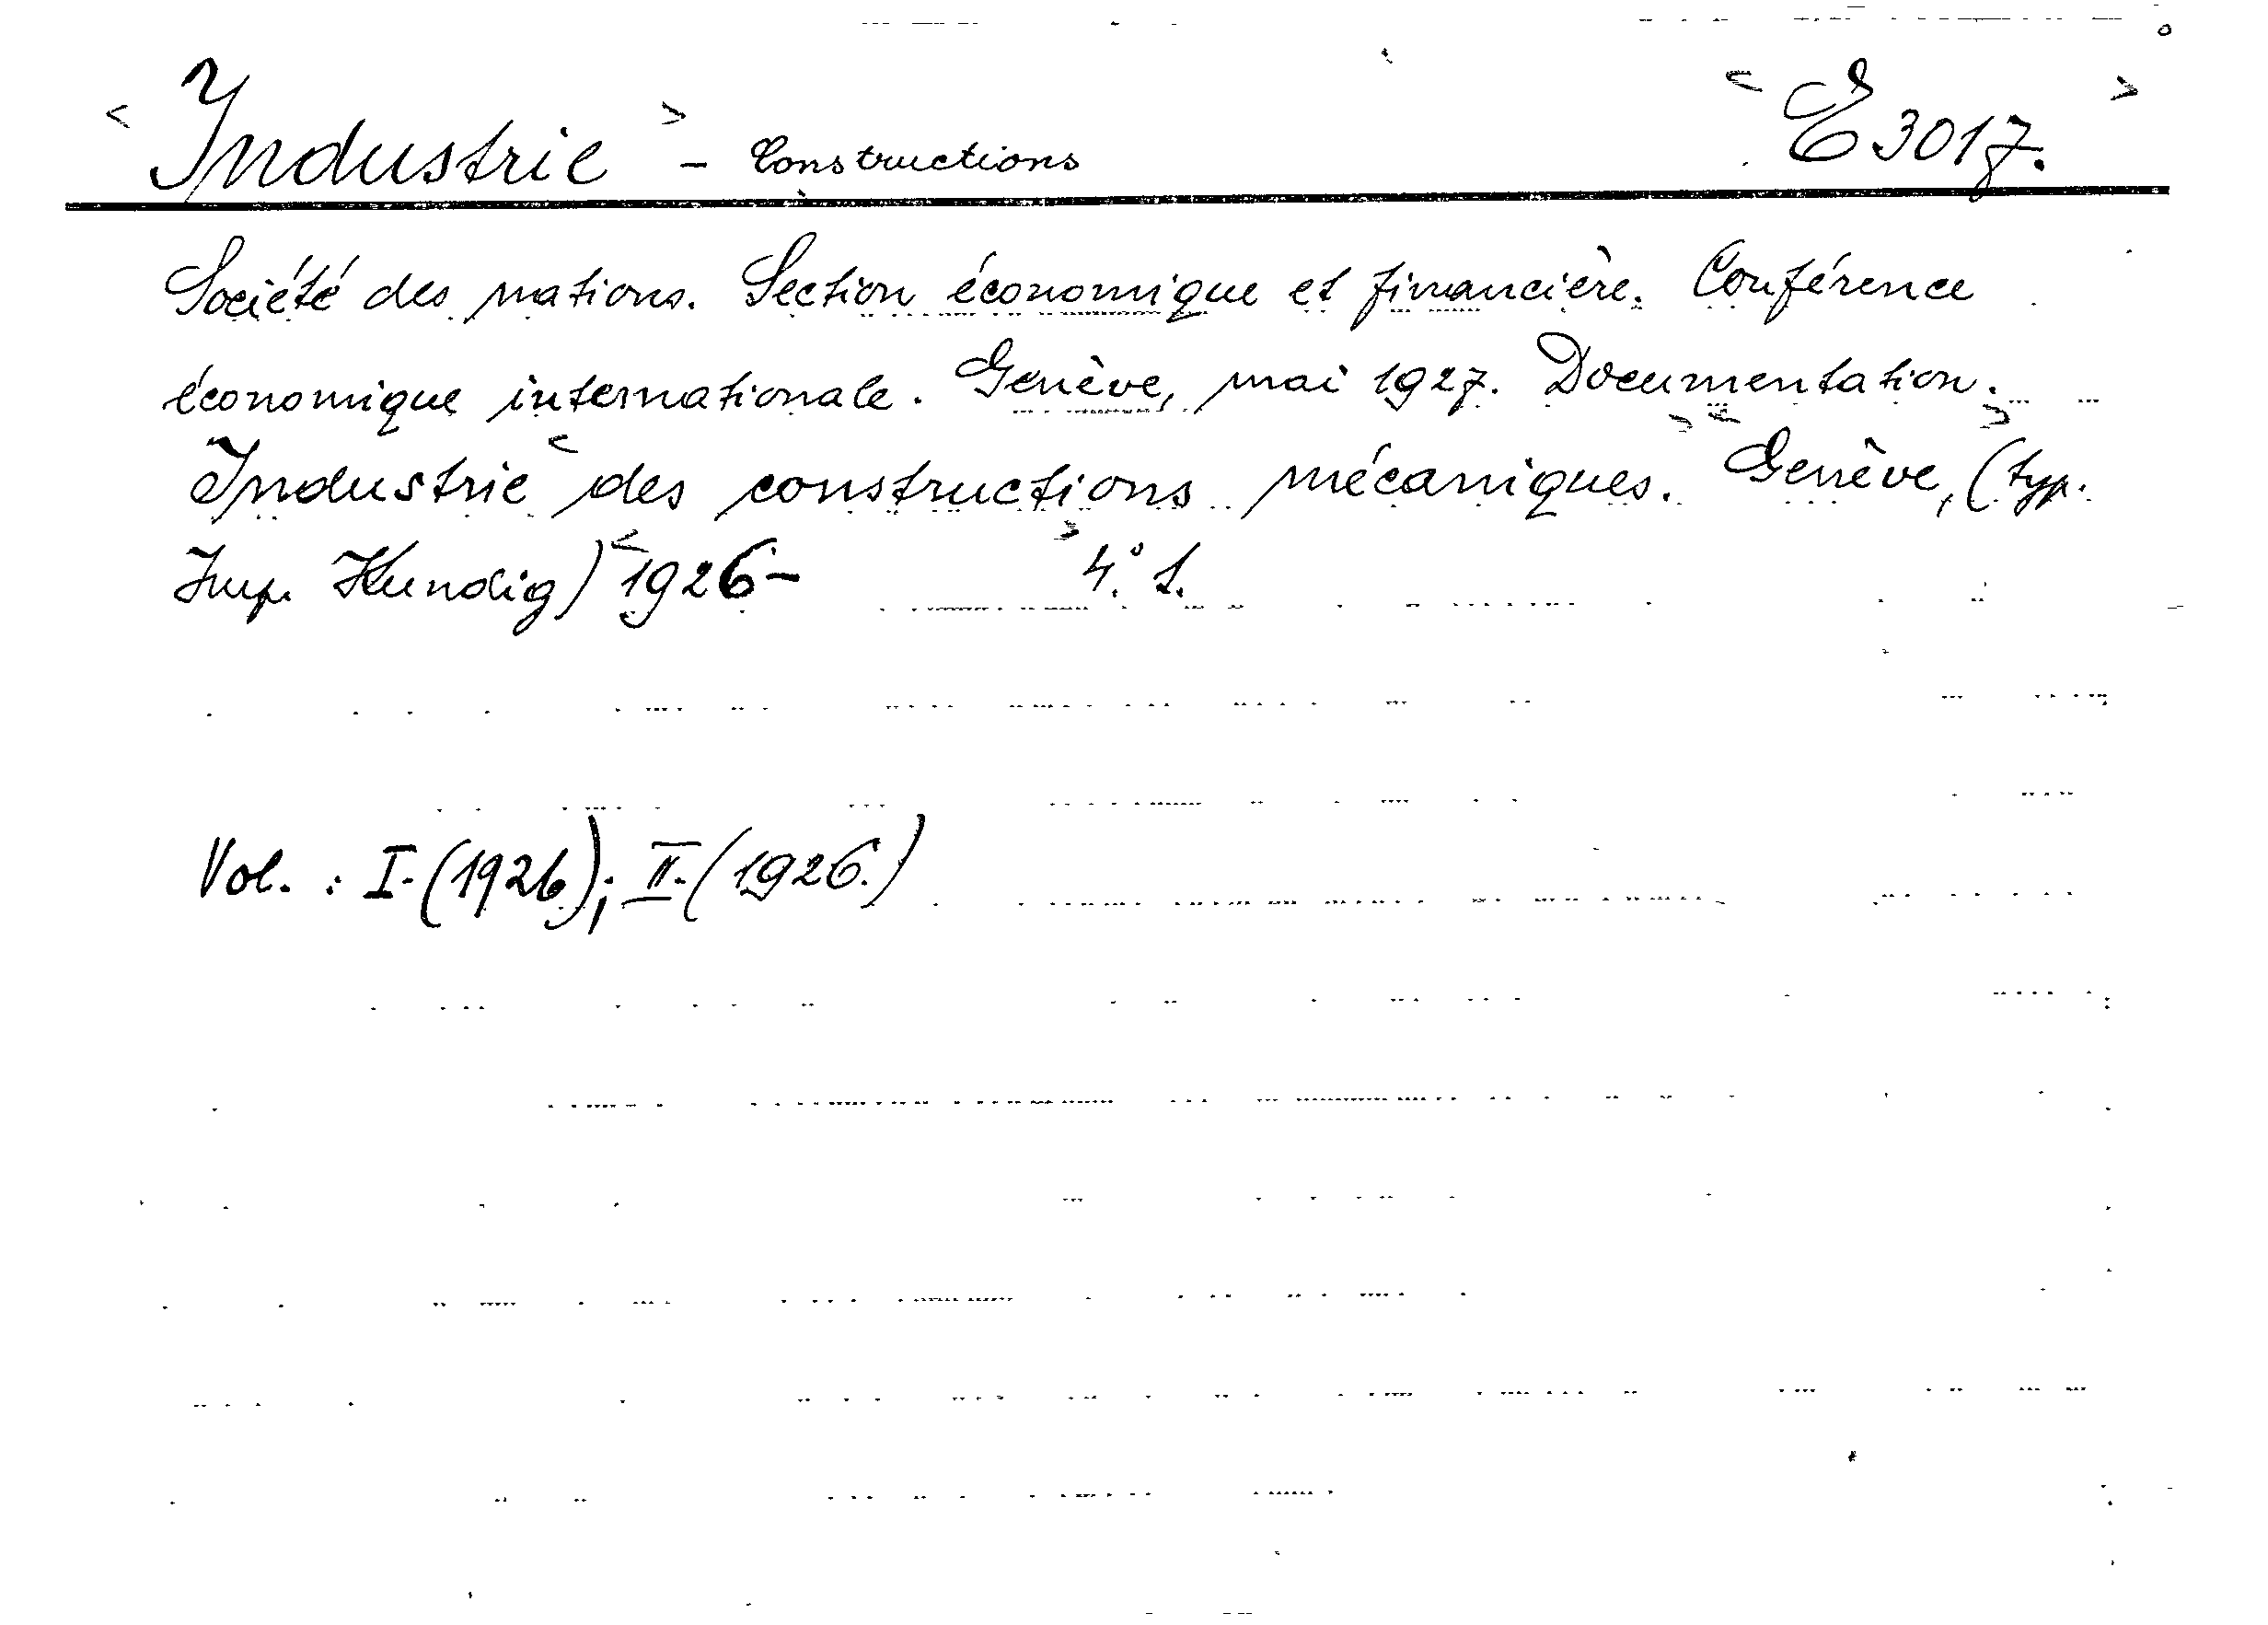 < Industrie > - Constructions < E 3017. >
Société des nations. Section économique et financière. Conférence
économique internationale. Genève, mai 1927. Documentation.
< Industrie des constructions mécaniques. > < Genève, > (typ.
Imp. Kundig) < 1926- > 4.° l.
Vol. : I. (1926); II. (1926.)